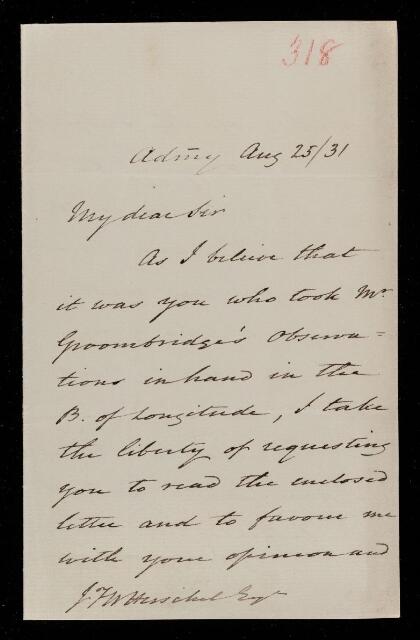 318
Admy Aug 25/31
My dear Sir
As I believe that
it was you who took Mr
Groombridge's Observa=
tions in hand in the
B. of Longitude, I take
the liberty of requesting
you to read the enclosed
letter and to favour me
with your opinion and
J.F.W. Herschel Esqr